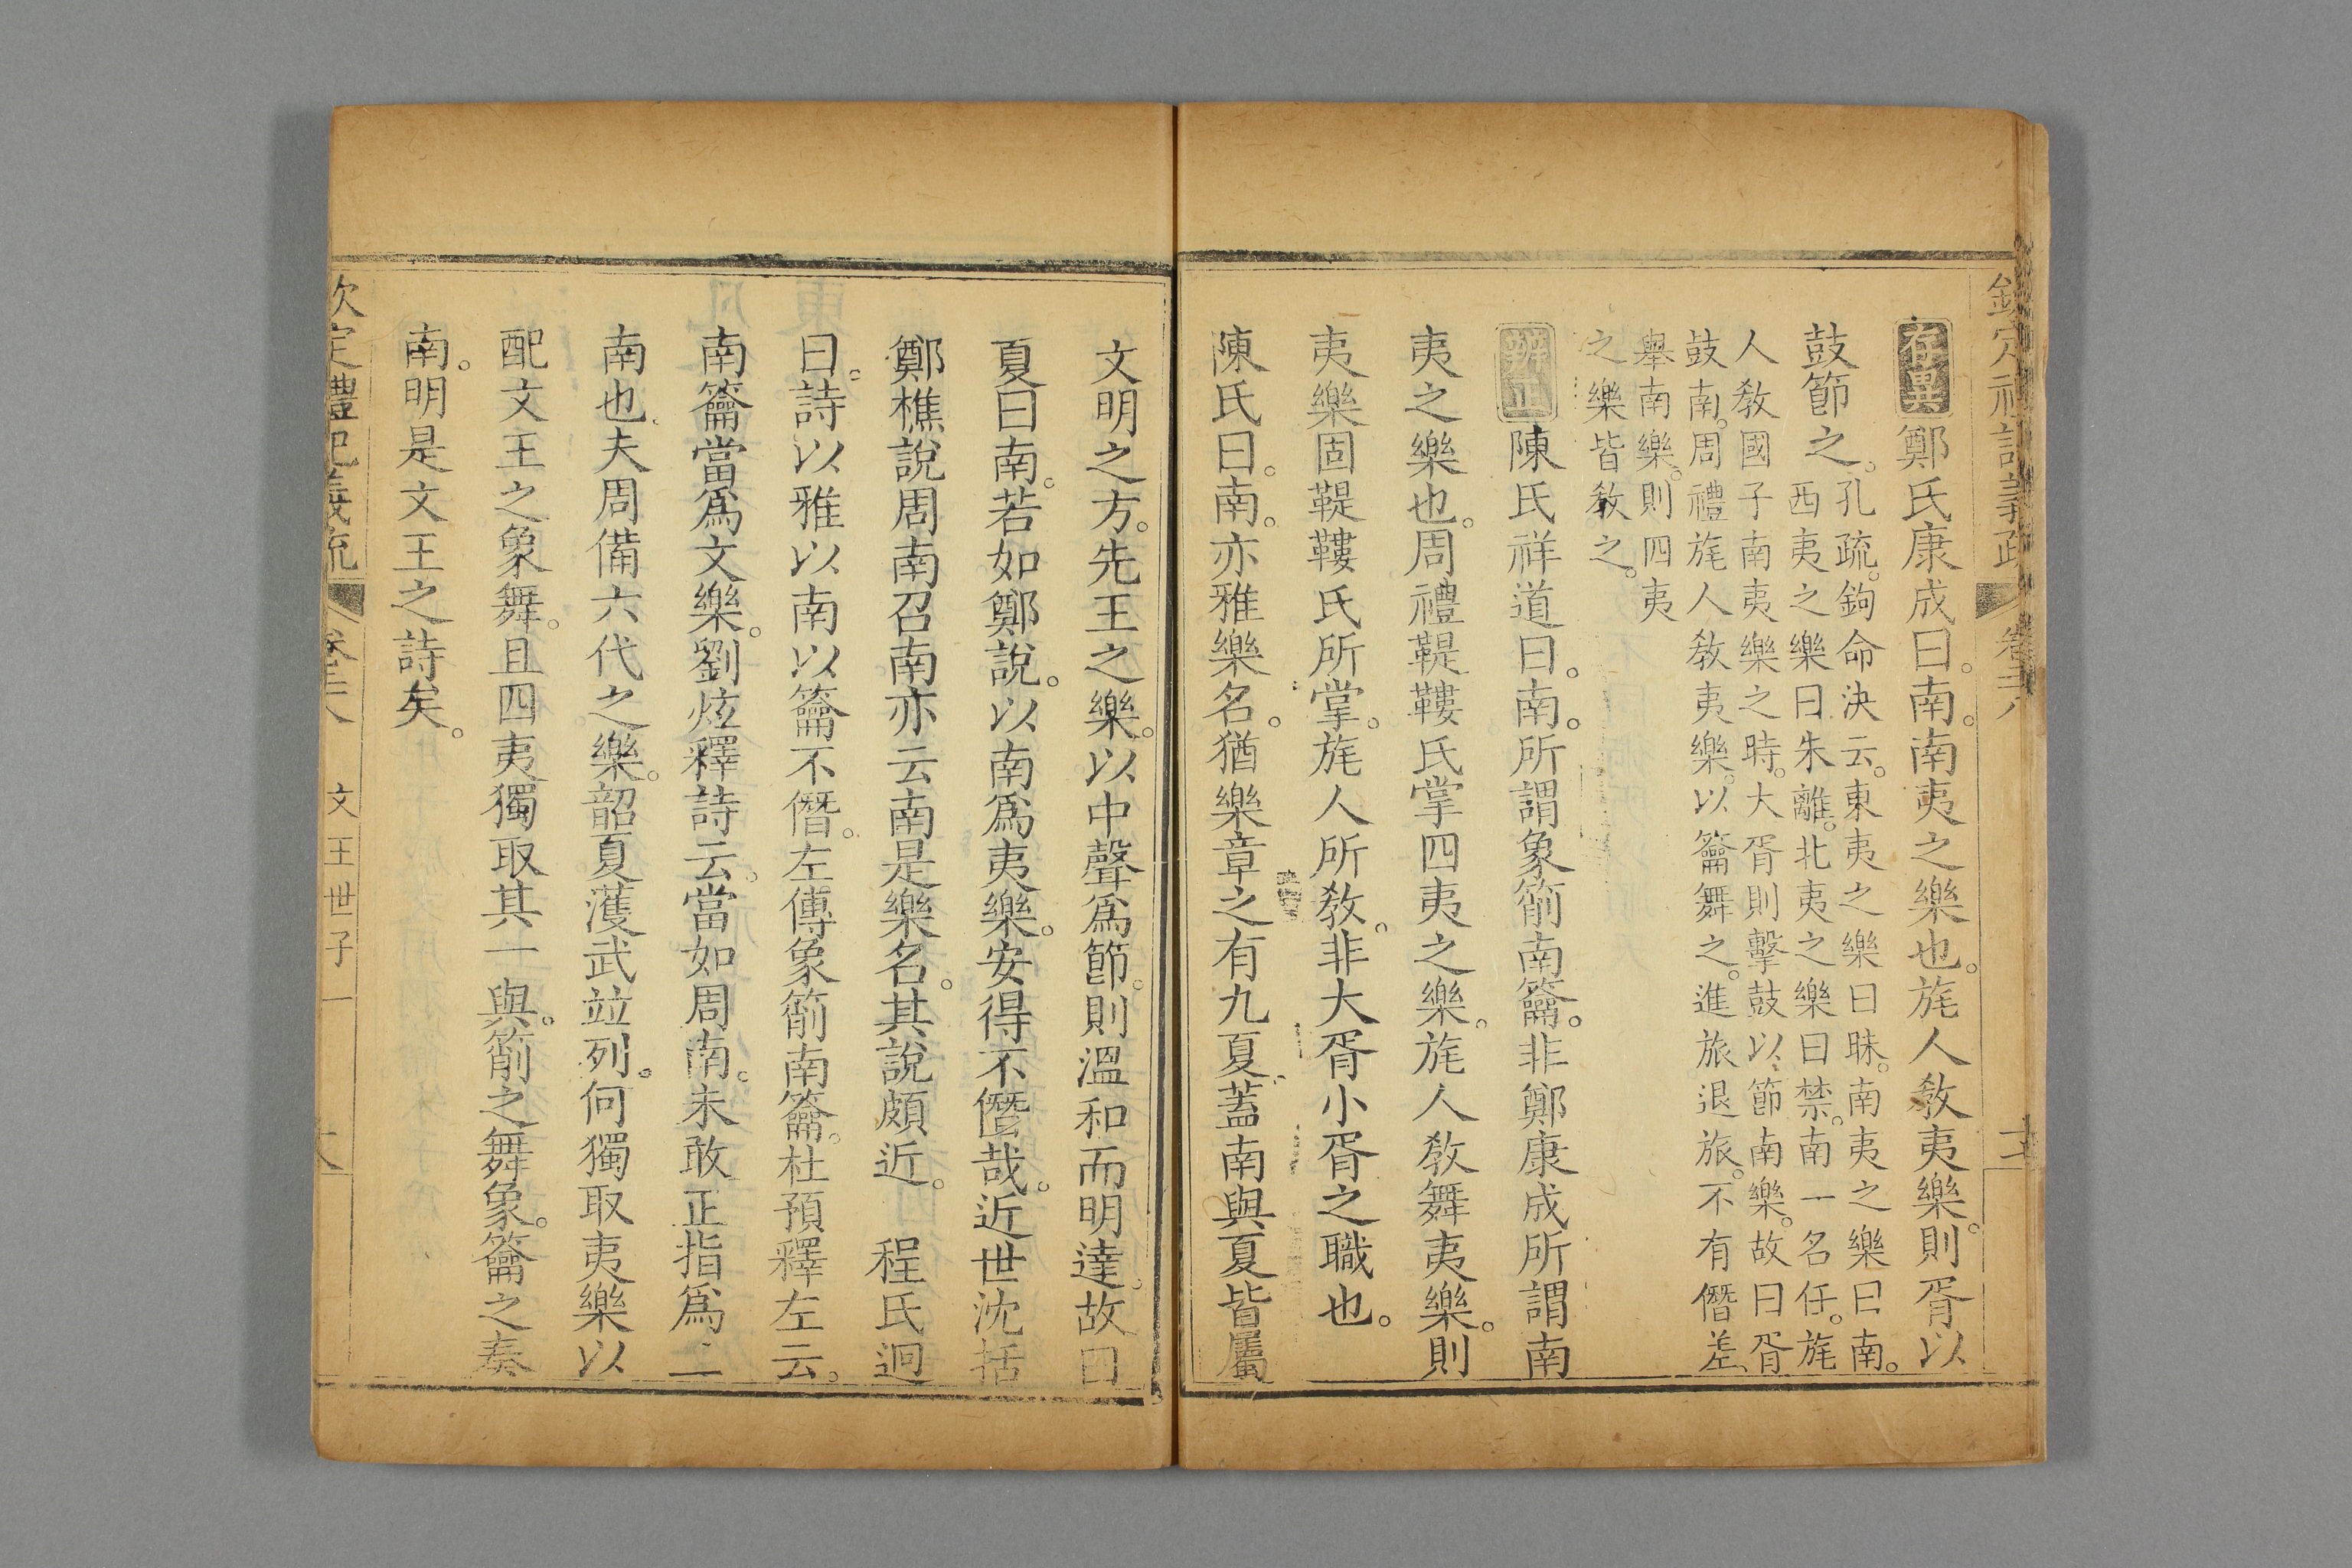 欽定禮記義疏 卷二十八 十七
存異鄭氏康成曰。南。南夷之樂也。旄人敎夷樂。則胥以
鼓節之。
孔疏。鉤命決云。東夷之樂曰昧。南夷之樂曰南。
西夷之樂曰朱離。北夷之樂曰禁。南一名任。旄
人敎國子南夷樂之時。大胥則擊鼓以節南樂。故曰胥
鼓南。周禮旄人敎夷樂。以籥舞之。進旅退旅。不有僭差、
舉南樂。則四夷
之樂皆敎之。
辨正陳氏祥道曰。南。所謂象箾南籥。非鄭康成所謂南
夷之樂也。周禮鞮鞻氏掌四夷之樂。旄人敎舞夷樂。則
夷樂固鞮鞻氏所掌。旄人所敎。非大胥小胥之職也。
陳氏曰。南。亦雅樂名。猶樂章之有九夏、蓋南與夏皆屬
文明之方。先王之樂。以中聲爲節。則溫和而明達。故曰
夏曰南。若如鄭說。以南爲夷樂。安得不僭哉。近世沈括
鄭樵說周南召南亦云南是樂名。其說頗近。 程氏迥
曰。詩以雅以南以籥不僭。左傳象箾南籥。杜預釋左云。
南籥當爲文樂。劉炫釋詩云。當如周南。未敢正指爲二
南也。夫周備六代之樂。韶夏濩武竝列。何獨取夷樂以
配文王之象舞。且四夷獨取其一與。箾之舞象。籥之奏
南。明是文王之詩矣。
欽定禮記義疏 卷二十八 文王世子一